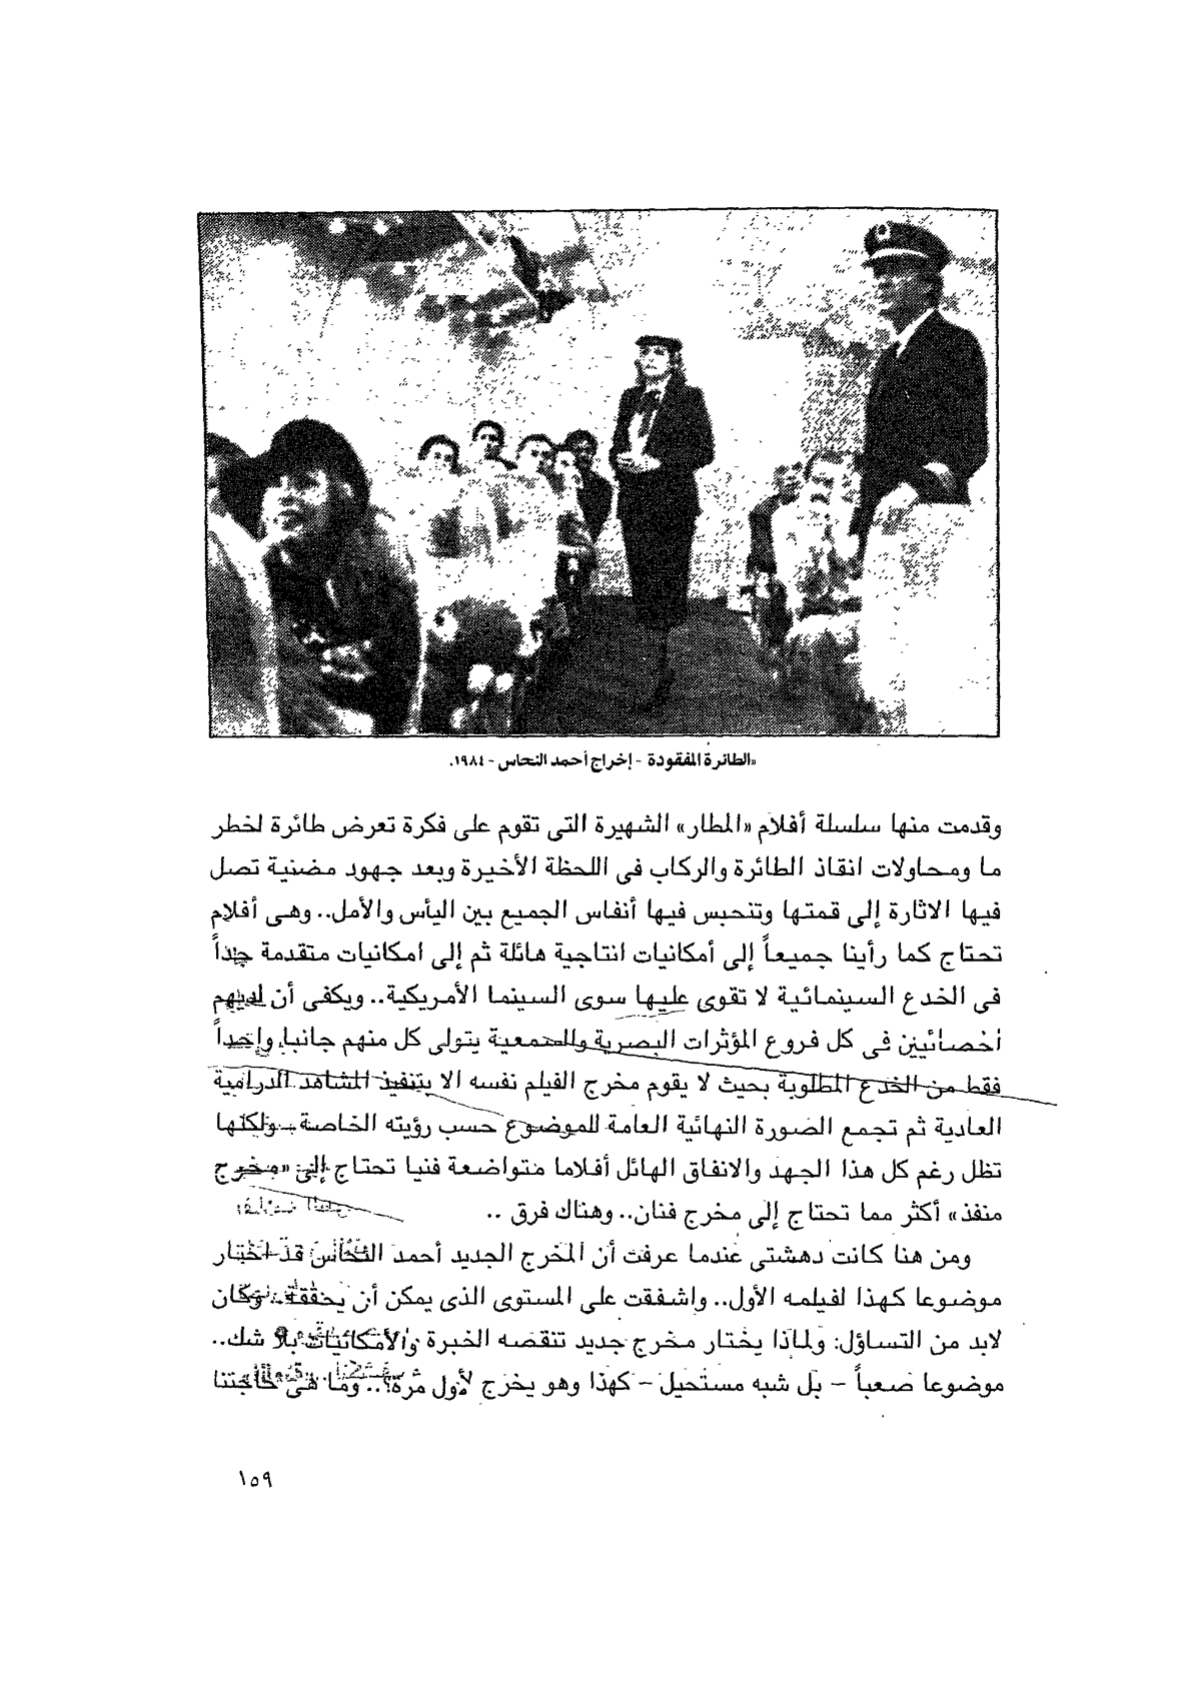 «الطائرة المفقودة - إخراج أحمد النحاس - ١٩٨٤.
وقدمت منها سلسلة أفلام «المطار» الشهيرة التى تقوم على فكرة تعرض طائرة لخطر
ما ومحاولات انقاذ الطائرة والركاب فى اللحظة الأخيرة وبعد جهود مضنية تصل
فيها الاثارة إلى قمتها وتنحبس فيها أنفاس الجميع بين اليأس والأمل.. وهى أفلام
تحتاج كما رأينا جميعاً إلى أمكانيات انتاجية هائلة ثم إلى امكانيات متقدمة جداً
فى الخدع السينمائية لا تقوى عليها سوى السينما الأمريكية.. ويكفى أن لديهم
أخصائيين فى كل فروع المؤثرات البصرية والسمعية يتولى كل منهم جانبا واحداً
فقط من الخدع المطلوبة بحيث لا يقوم مخرج الفيلم نفسه الا بتنفيذ المشاهد الدرامية
العادية ثم تجمع الصورة النهائية العامة للموضوع حسب رؤيته الخاصة.. ولكنها
تظل رغم كل هذا الجهد والانفاق الهائل أفلاما متواضعة فنيا تحتاج إلى «مخرج
منفذ» أكثر مما تحتاج إلى مخرج فنان.. وهناك فرق ..
ومن هنا كانت دهشتى عندما عرفت أن المخرج الجديد أحمد النحاس قد اختار
موضوعا كهذا لفيلمه الأول.. واشفقت على المستوى الذى يمكن أن يحققه.. وكان
لابد من التساؤل: ولماذا يختار مخرج جديد تنقصه الخبرة والأمكانيات بلا شك..
موضوعا صعباً – بل شبه مستحيل – كهذا وهو يخرج لأول مرة؟.. وما هى حاجتنا
١٥٩